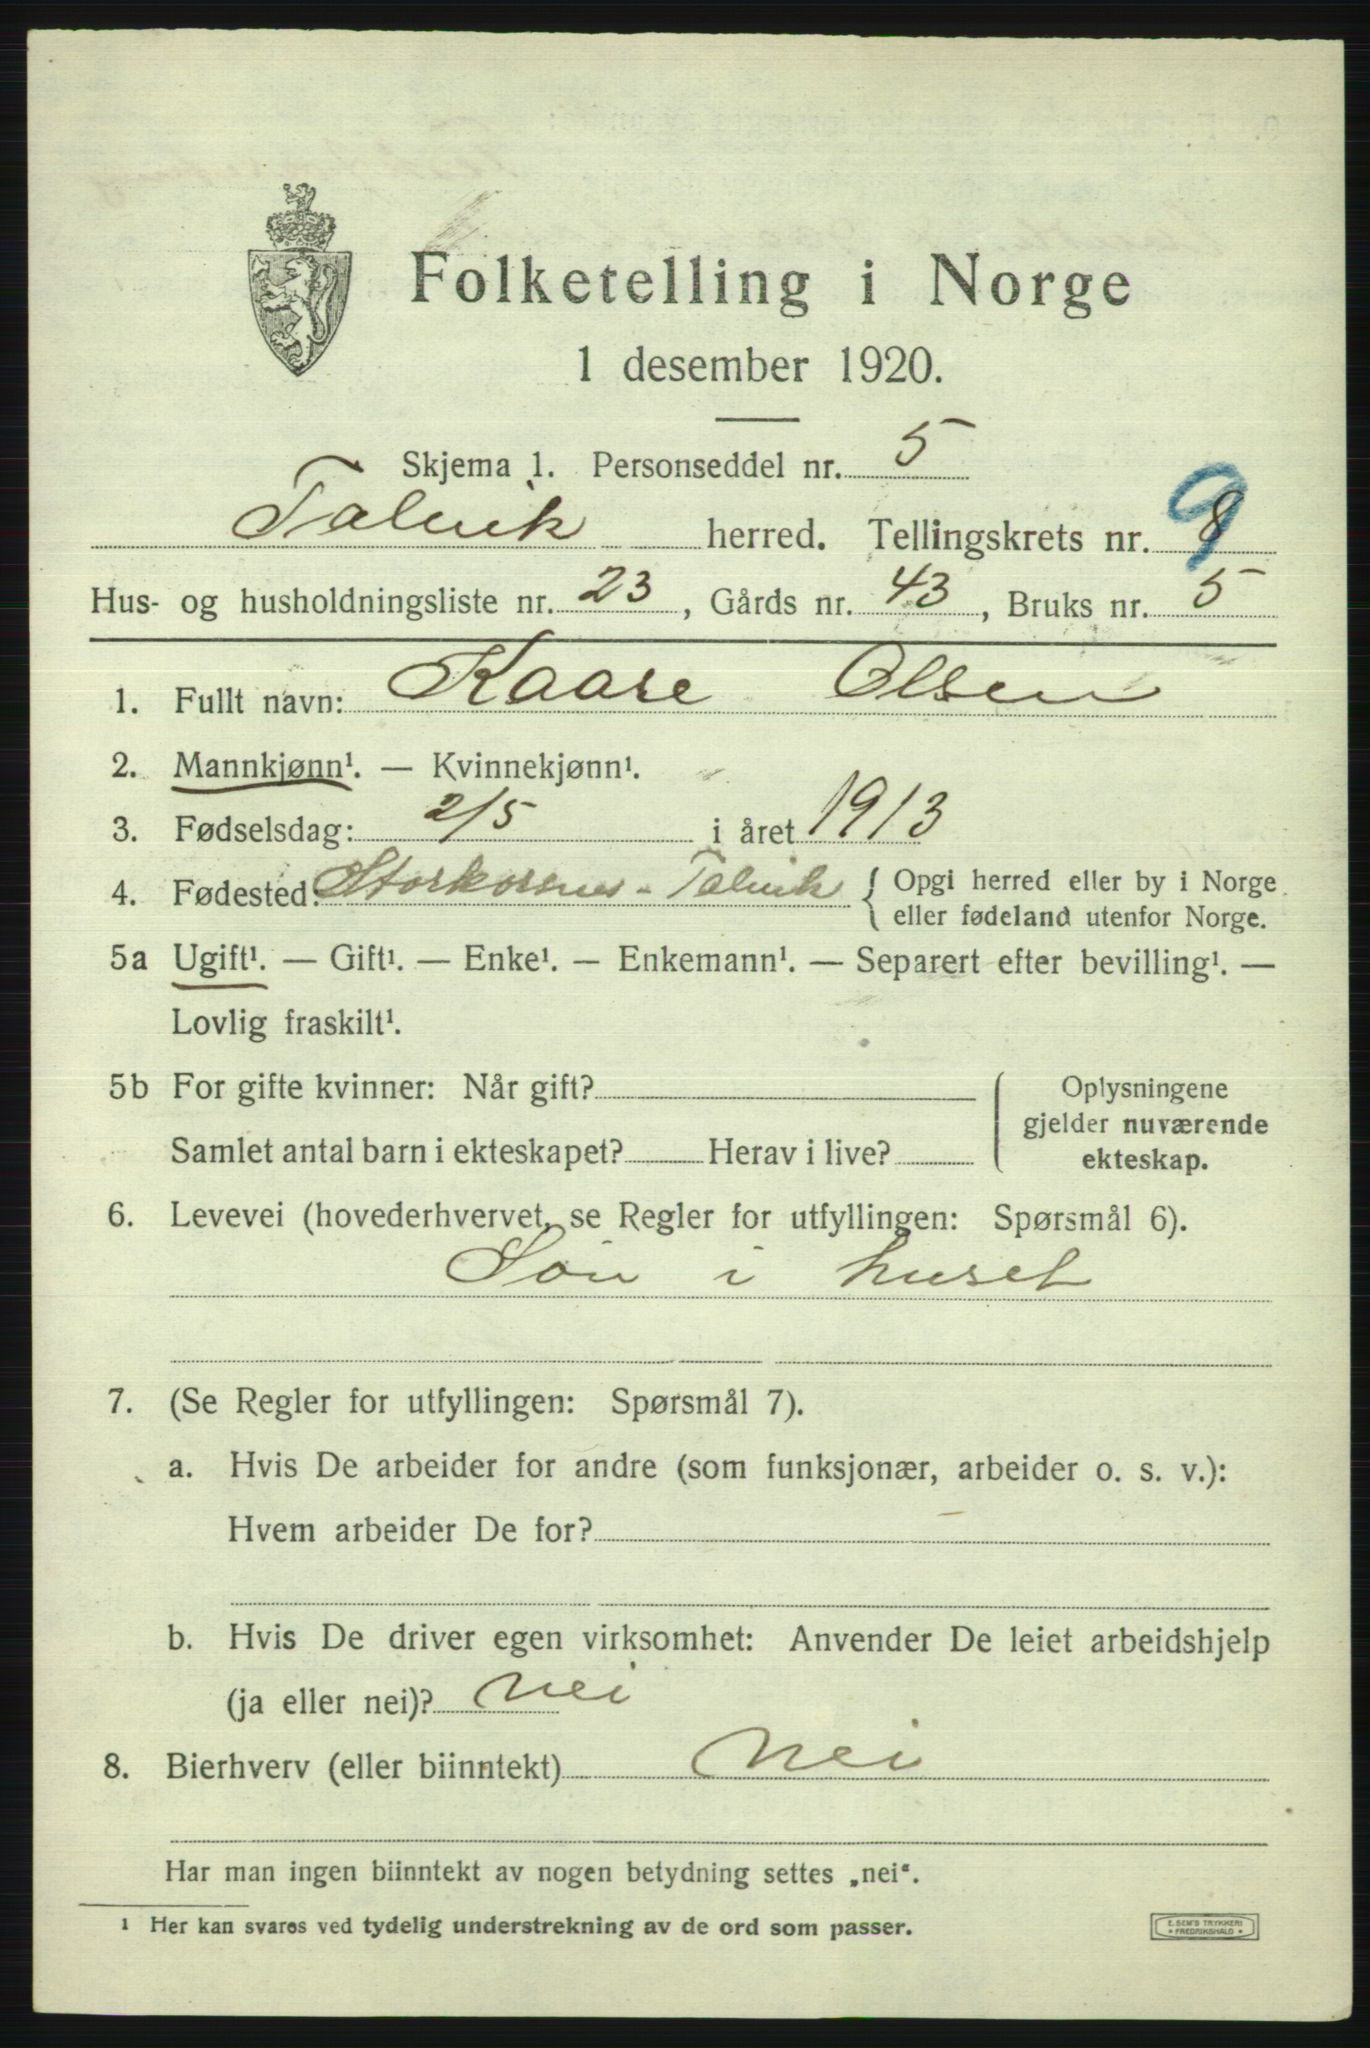 Folketelling i Norge
1 desember 1920.
Skjema 1. Personseddel nr. 5
Talvik herred. Tellingskrets nr. 8 9
Hus- og husholdningsliste nr. 23, Gårds nr. 43, Bruks nr. 5
1. Fullt navn: Kaare Olsen
2. Mannkjønn¹. — Kvinnekjønn¹.
3. Fødselsdag: 2/5 i året 1913
4. Fødested: Storkorsnes - Talvik { Opgi herred eller by i Norge
eller fødeland utenfor Norge.
5a Ugift¹. — Gift¹. — Enke¹. — Enkemann¹. — Separert efter bevilling¹. —
Lovlig fraskilt¹.
5b For gifte kvinner: Når gift? Oplysningene
gjelder nuværende
Samlet antal barn i ekteskapet? Herav i live? ekteskap.
6. Levevei (hovederhvervet, se Regler for utfyllingen: Spørsmål 6).
Søn i huset
7. (Se Regler for utfyllingen: Spørsmål 7).
a. Hvis De arbeider for andre (som funksjonær, arbeider o. s. v.):
Hvem arbeider De for?
b. Hvis De driver egen virksomhet: Anvender De leiet arbeidshjelp
(ja eller nei)? nei
8. Bierhverv (eller biinntekt) nei
Har man ingen biinntekt av nogen betydning settes „nei“.
¹ Her kan svares ved tydelig understrekning av de ord som passer.
E. SEM'S TRYKKERI
FREDRIKSHALD